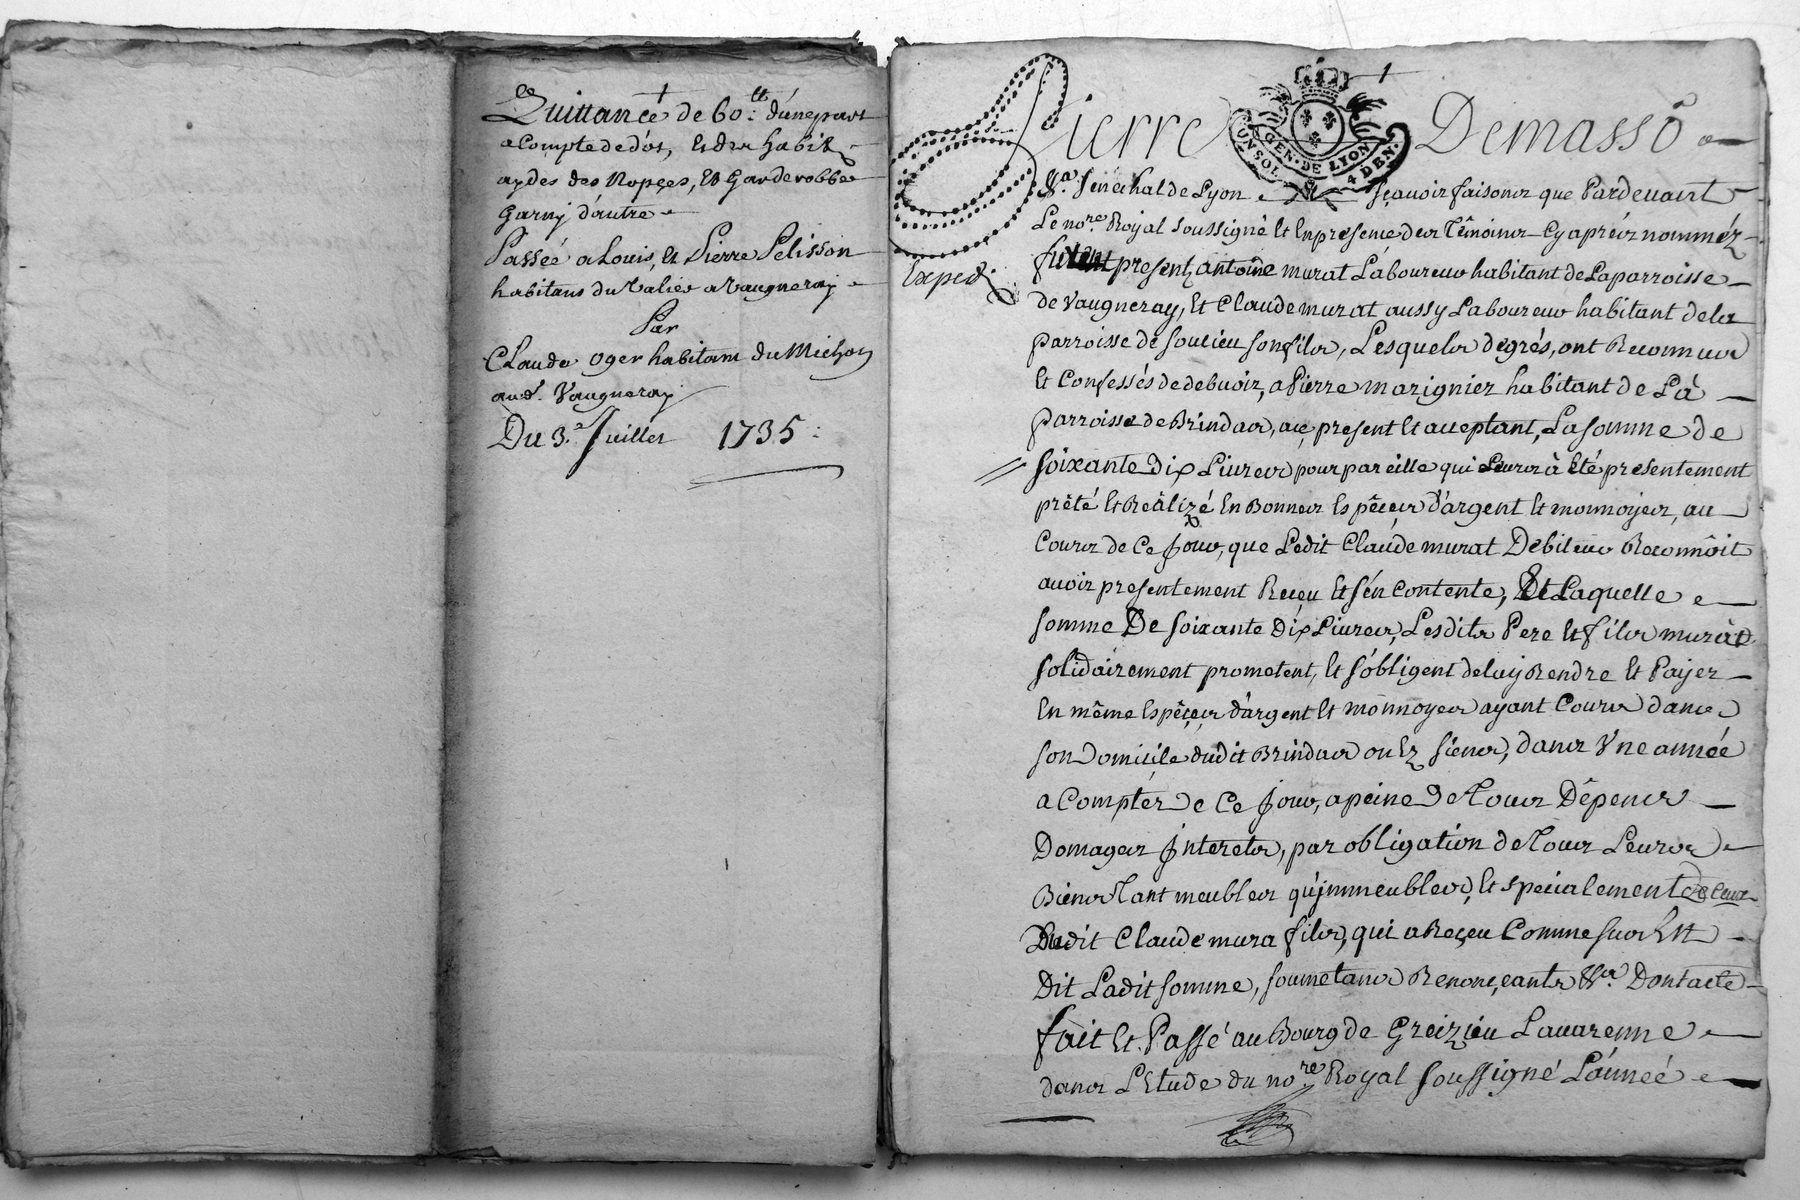 Quittancé de 60.tt d'úne part
a Compte de dót, Et des habit
aydes des Nopçes, Et Garderobbe
Garny d'autre
Passée a Louis, Et Pierre Pelisson
habitans du Valier a Vaugneray
Par
Claude Oger habitant du Michon
aud.t Vaugneray
Du 3.e Juillet 1735 :
Pierre Demasso
GEN. DE LYON
CONSOL. 4 DEN.
&.a Senechal de Lyon sçavoir faisons que Pardevant
Le no.re Royal soussigné Et En presence des Témoins Cy aprés nomméz
furent present, antoine murat Laboureur habitant de La parroisse
de Vaugneray, Et Claude murat aussy Laboureur habitant de la
parroisse de soucieu son fils, Lesquels de grés, ont Reconnus
Et Confessés de debvoir, a Pierre marignier habitant de La
Exped.
parroisse de Brindas, aç present Et acceptant, La somme de
soixante dix Livres pour pareille qui Leurs à été presentement
prêté Et Reálizé En Bonnes Espéces d'argent Et monnoyes, au
Cours de Ce Jour, que Ledit Claude murat Debiteur Reconnôit
avoir presentement Reçeu Et s'en contente, Et Laquelle
somme De soixante Dix Livres, Lesdits Pere Et fils murat
solidairement prometent, Et s'obligent de luy Rendre Et Payer
En même Espéçes d'argent Et monnoyes ayant Cours dans
son Domicile dudit Brindas ou Ez siens, dans Vne année
a Compter de Ce Jour, a peine de Tous Dépens
Domages Jnterets, par obligation de Tous Leurs
Biens Tant meubles qu'jmmeubles, Et specialement de Ceux
Dudit Claude mura fils, qui a Reçeu Comme sus Est
Dit Ladit somme, soumetans Renonçeants &.a Dont acte
fait Et Passé au Bourg de Greizieu Lavarenne
dans L'Etude du no.re Royal soussigné L'ánnéé